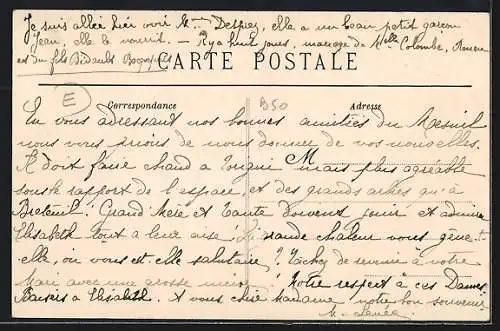 Je suis allée hier voir Mme Despiez, elle a un beau petit garçon
Jean, elle le nourrit. — Il y a huit jours, mariage de Melle Colombe,
et du fils Bidault
CARTE POSTALE
E
Correspondance B50 Adresse
En vous adressant nos bonnes amitiés du Mesnil
nous vous prions de nous donner de vos nouvelles.
Il doit faire chaud a mais plus agréable
sous le rapport de l'espace, et des grands arbres qu'à
Breteuil. Grand Mère et Tante doivent jouir et admirer
Elisabeth tout à leur aise! grande chaleur vous gêne-t-
elle, ou vous est-elle salutaire? Tachez de revenir à votre
avec une grosse mine. Notre respect à ces Dames
Baisers à Elisabeth. A vous chère Madame notre bon souvenir
M.